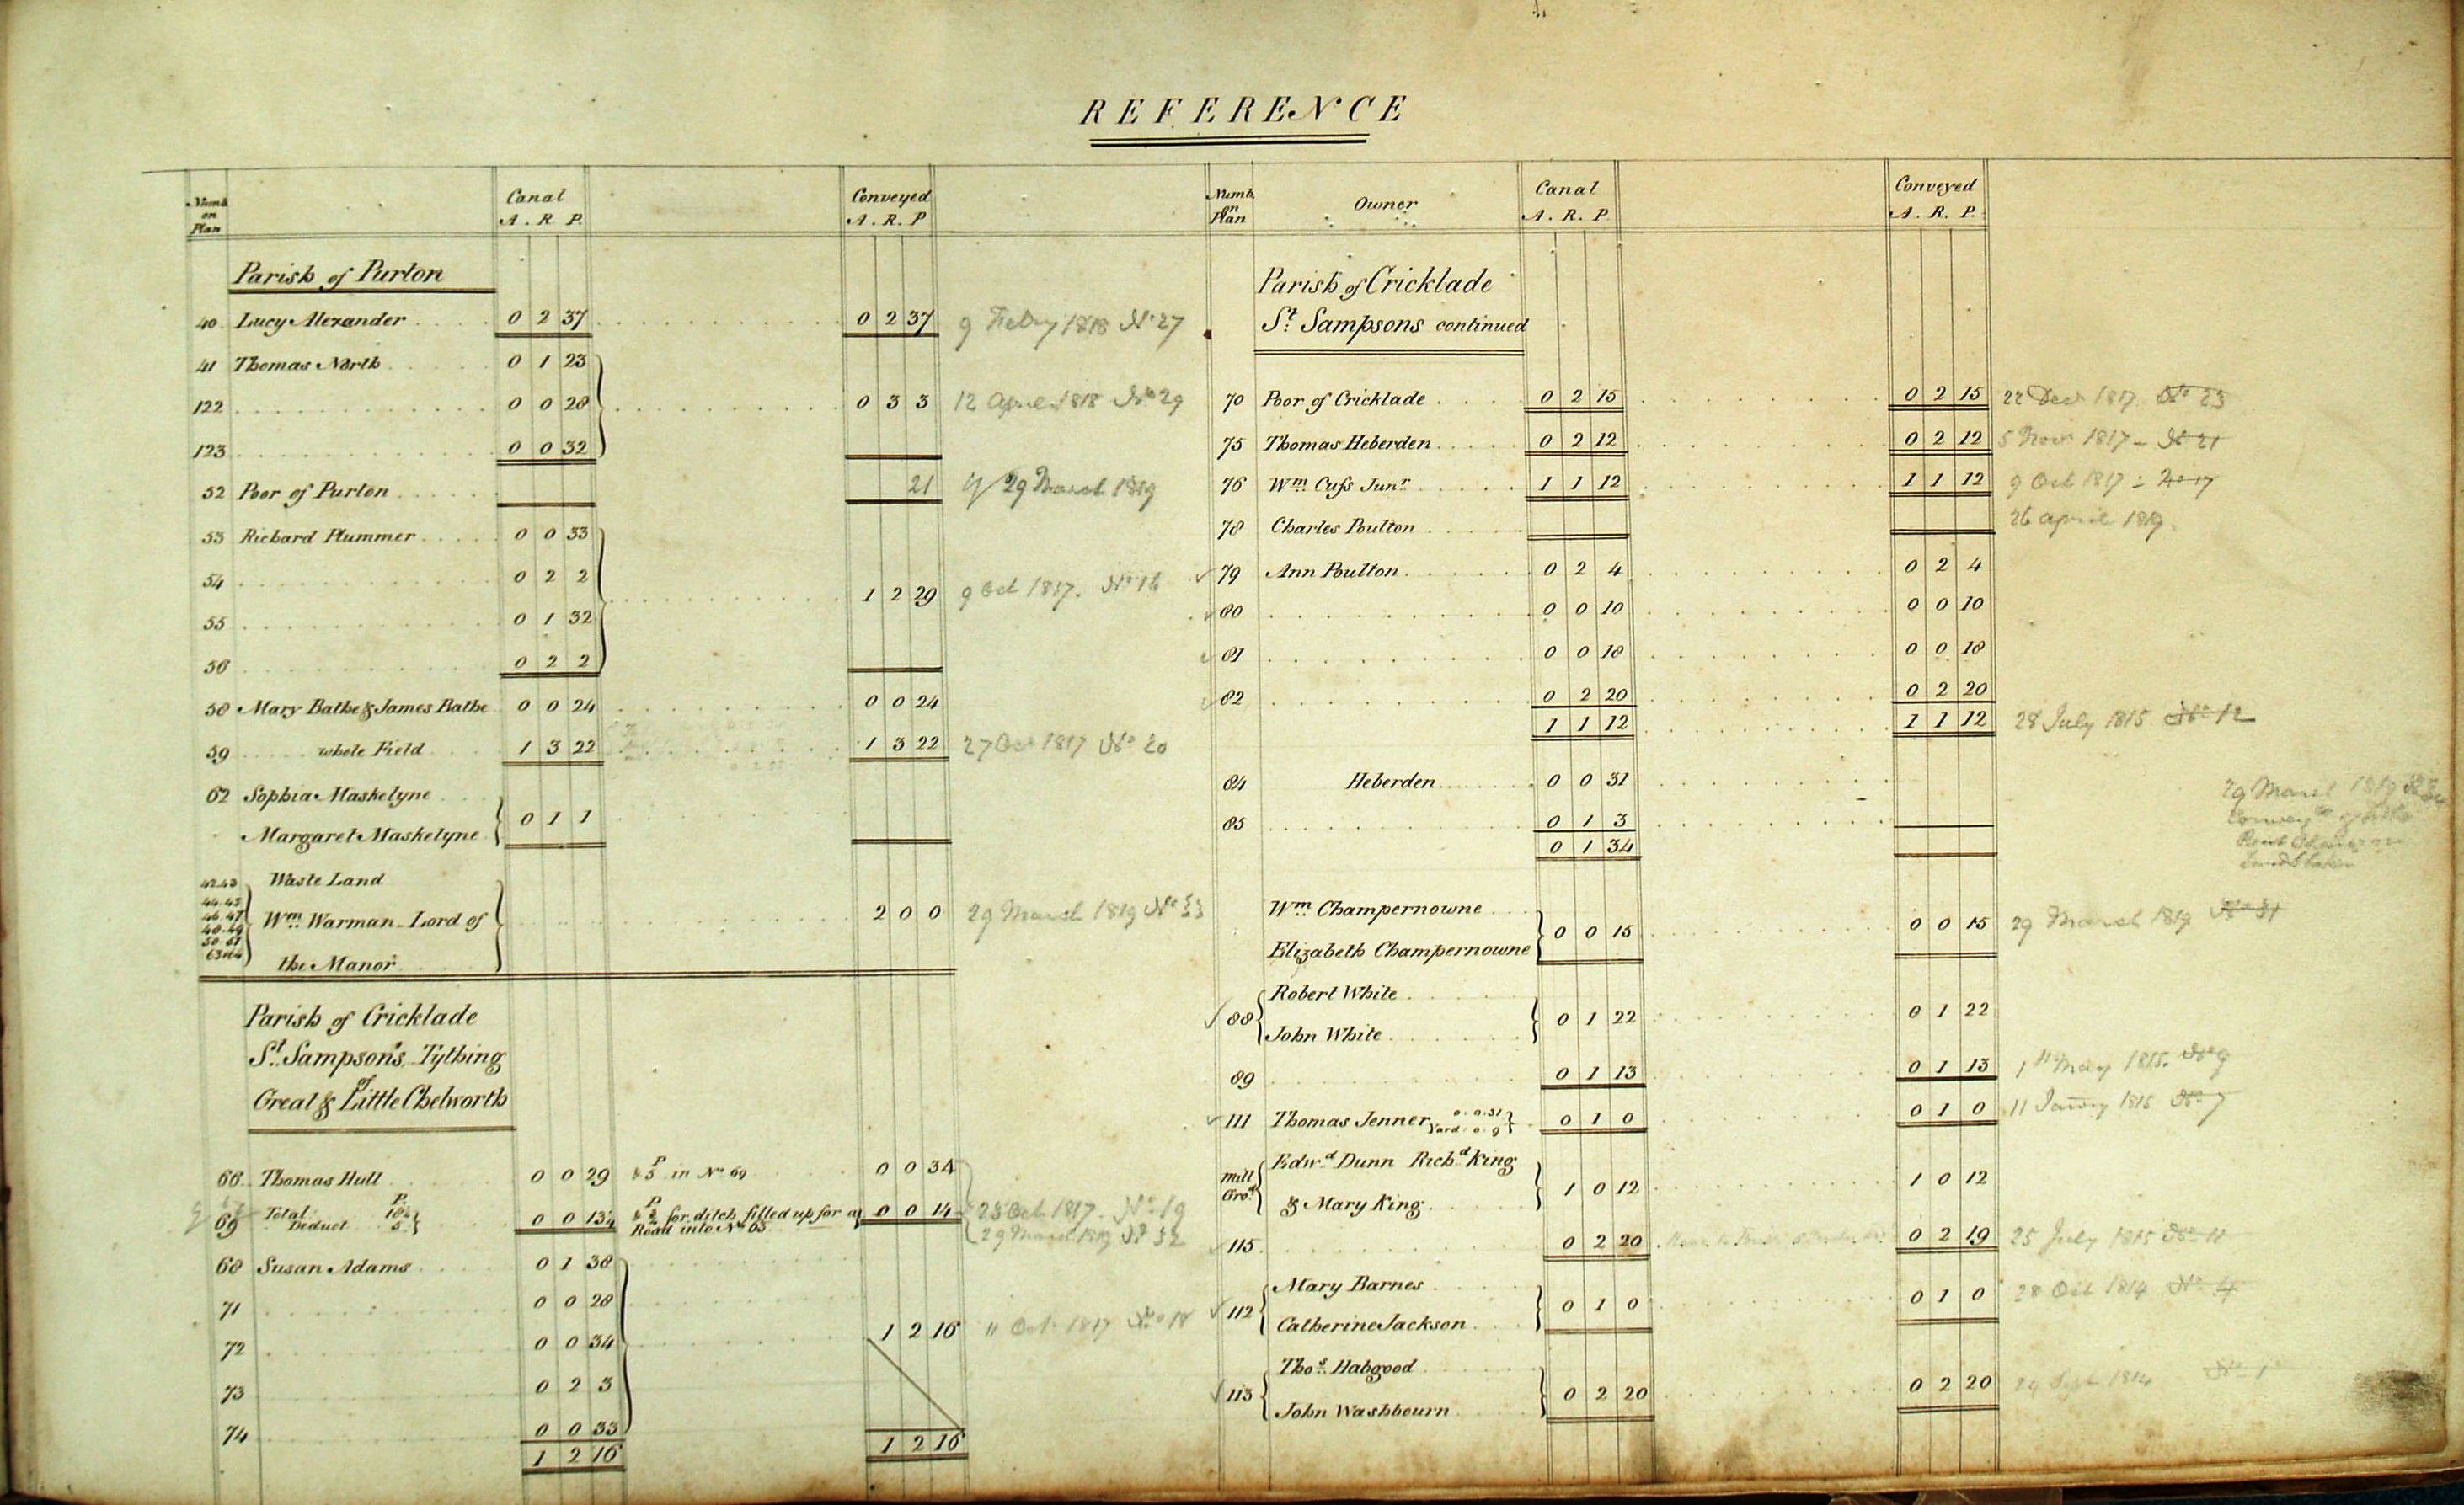 REFERENCE
Numb on Plan
Canal
A. R. P.
Conveyed
A. R. P
Parish of Purton
40 Lucy Alexander 0 2 37 0 2 37 9 Febry 1818 No 27
41 Thomas North 0 1 23
122 0 0 28 0 3 3 12 April 1818 No 29
123 0 0 32
52 Poor of Purton 21 29 March 1819
53 Richard Plummer 0 0 33
54 0 2 2 1 2 29 9 Oct 1817. No 16
55 0 1 32
56 0 2 2
58 Mary Bathe & James Bathe 0 0 24 0 0 24
59 whole Field 1 3 22 1 3 22 27 Oct 1817 No 20
62 Sophia Maskelyne
Margaret Maskelyne 0 1 1
42.43 Waste Land
44.45
46.47 Wm Warman Lord of 2 0 0 29 March 1819 No 33
48.49
50.61
63.64 the Manor
Parish of Cricklade
St. Sampson's Tything
of
Great & Little Chelworth
66 Thomas Hull 0 0 29 & 5 P in No 69 0 0 34
69 Total P. 18½ 0 0 13½ & ½ P for ditch filled up for a 0 0 14 25 Oct 1817. No 19
Deduct 5 Road into No 65 29 March 1819 No 32
68 Susan Adams 0 1 38
71 0 0 28
72 0 0 34 1 2 16 11 Oct 1817 No 18
73 0 2 3
74 0 0 33
1 2 16 1 2 16
Numb on Plan
Owner
Canal
A. R. P.
Conveyed
A. R. P.
Parish of Cricklade
St. Sampsons continued
70 Poor of Cricklade 0 2 15 0 2 15 22 Decr 1817 No 23
75 Thomas Heberden 0 2 12 0 2 12 5 Novr 1817 - No 21
76 Wm. Cuss Junr. 1 1 12 1 1 12 9 Oct 1817 - No 17
78 Charles Poulton 26 April 1819.
79 Ann Poulton 0 2 4 0 2 4
80 0 0 10 0 0 10
81 0 0 18 0 0 18
82 0 2 20 0 2 20
1 1 12 1 1 12 28 July 1815 No 12
84 Heberden 0 0 31 29 March 1819
85 0 1 3
0 1 34
Wm. Champernowne
Elizabeth Champernowne 0 0 15 0 0 15 29 March 1819 No 31
Robert White
88 0 1 22 0 1 22
John White
89 0 1 13 0 1 13 1st May 1815. No 9
111 Thomas Jenner 0.0.31 Yard 0.9 0 1 0 0 1 0 11 Janry 1815 No 7
Mill Grod. Edwd. Dunn Richd. King
& Mary King 1 0 12 1 0 12
115 0 2 20 0 2 19 25 July 1815 No 11
Mary Barnes
112 0 1 0 0 1 0 28 Oct 1814 No 4
Catherine Jackson
Thos. Habgood
113 0 2 20 0 2 20 29 Sept 1814 No 1
John Washbourn